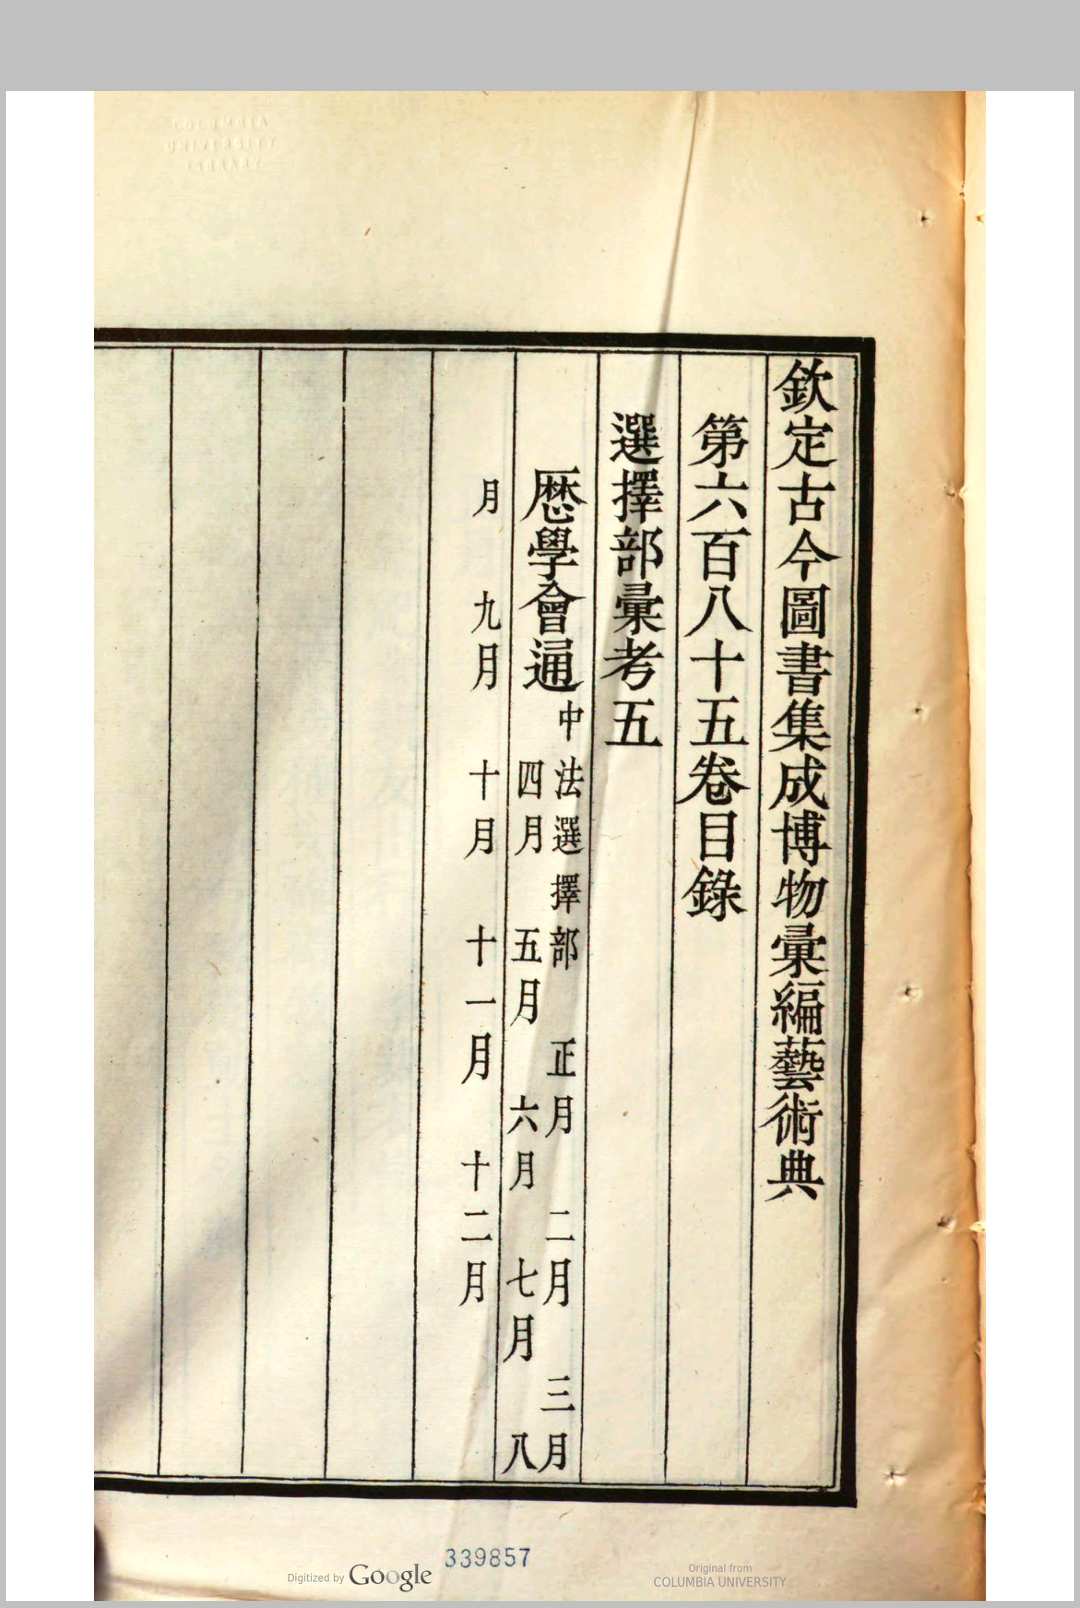 欽定古今圖書集成博物彙編藝術典
第六百八十五卷目錄
選擇部彙考五
厯學會通中法選擇部 正月 二月 三月
四月 五月 六月 七月 八
月 九月 十月 十一月 十二月
339857
Digitized by Google
Original from
COLUMBIA UNIVERSITY